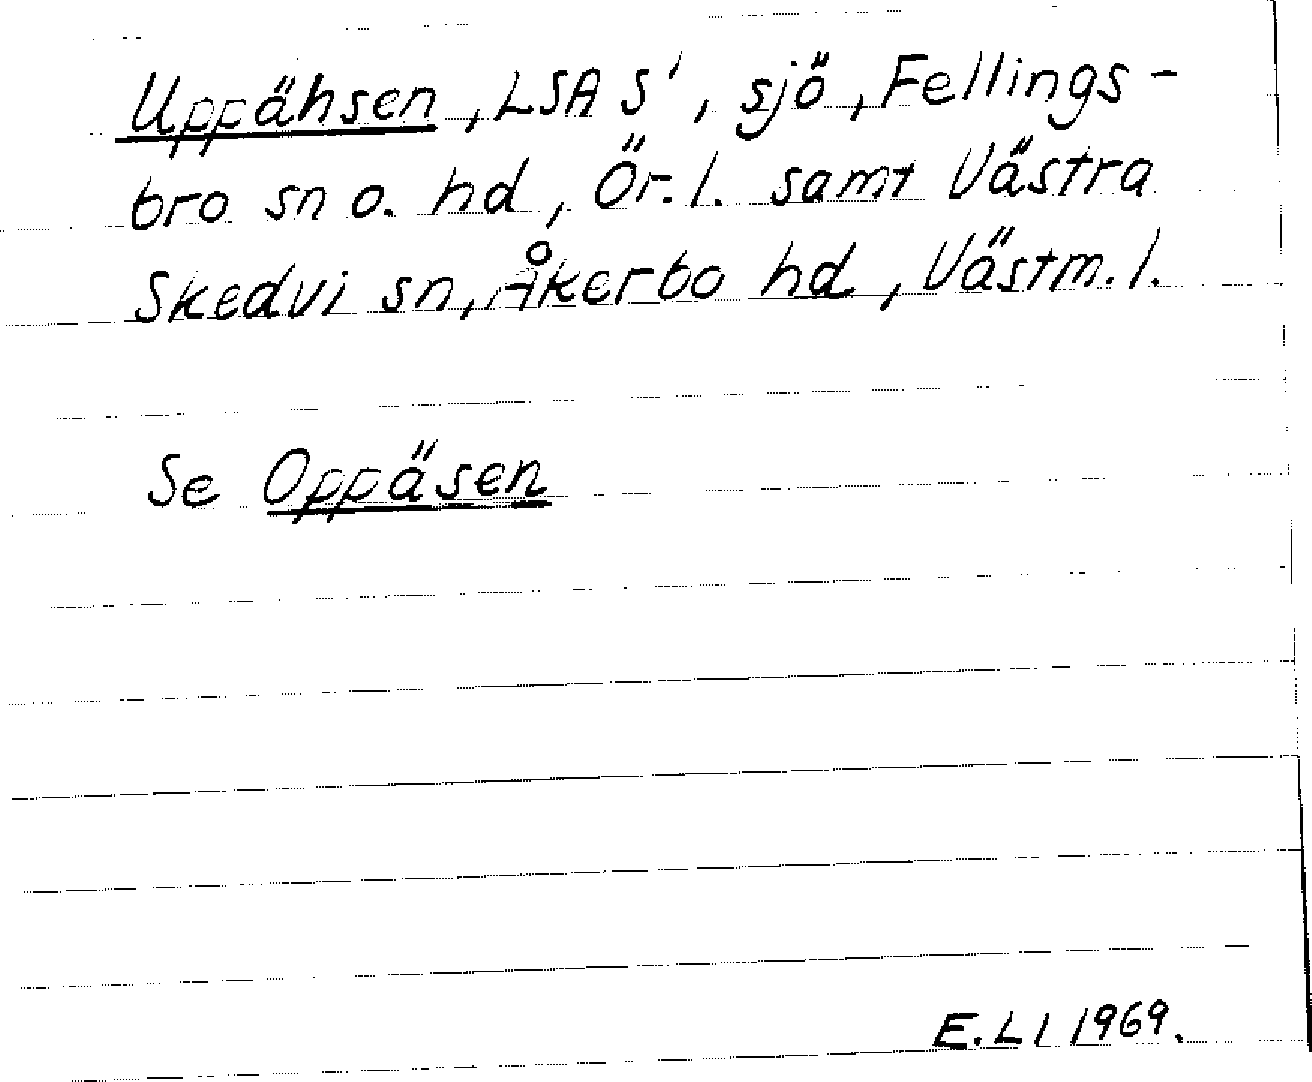 Uppähsen, LSA S', sjö, Fellings-
bro sn o. hd, Ör.l. samt Västra
Skedvi sn, Åkerbo hd, Västm.l.
Se Oppäsen
E.LI 1969.